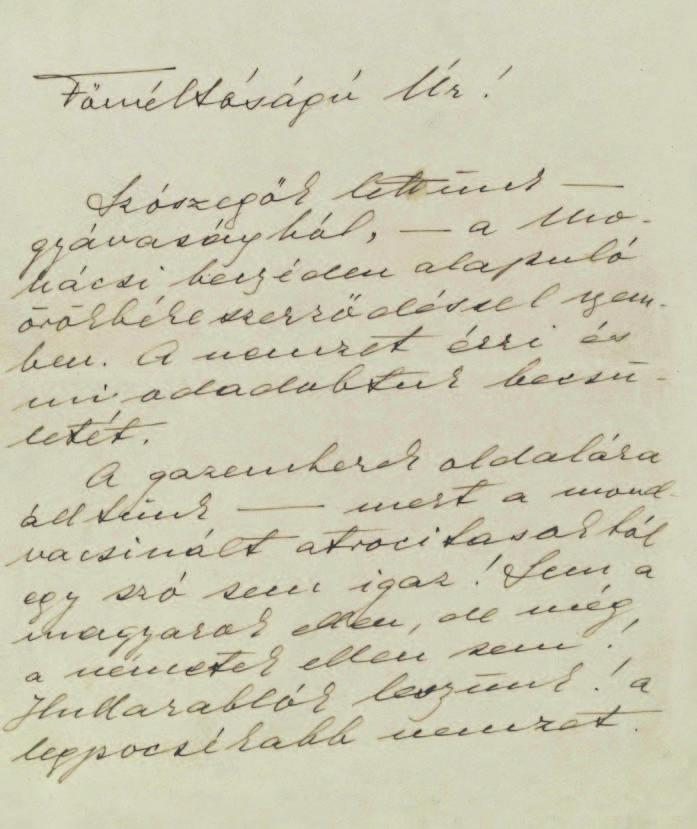 Főméltóságú Úr!
Szószegők lettünk —
gyávaságból, — a mo-
hácsi beszéden alapuló
örökbéke szerződéssel szem-
ben. A nemzet érzi és
mi odadobtuk becsü-
letét.
A gazemberek oldalára
álltunk — mert a mond-
vacsinált atrocitasokból
egy szó sem igaz! Sem a
magyarok ellen, de még
a németek ellen sem!
Hullarablók leszünk! a
legpocsékabb nemzet.